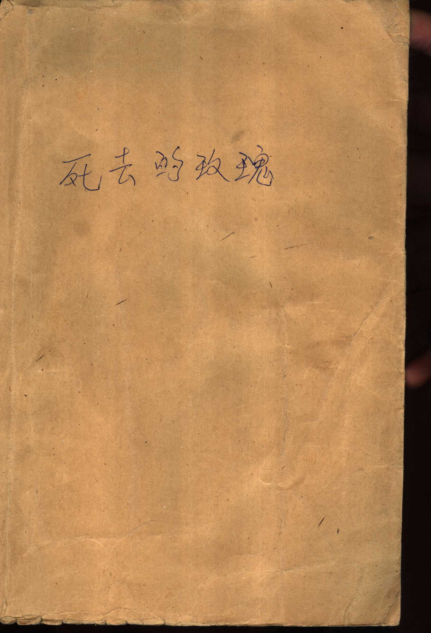 死去的玫瑰